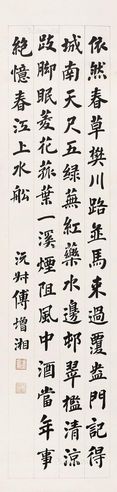 依然春草樊川路並馬東過覆盎門記得
城南天尺五綠蕪紅藥水邊邨翠檻清涼
跂腳眠菱花菰葉一溪煙阻風中酒當年事
絕憶春江上水船
沅叔傅增湘